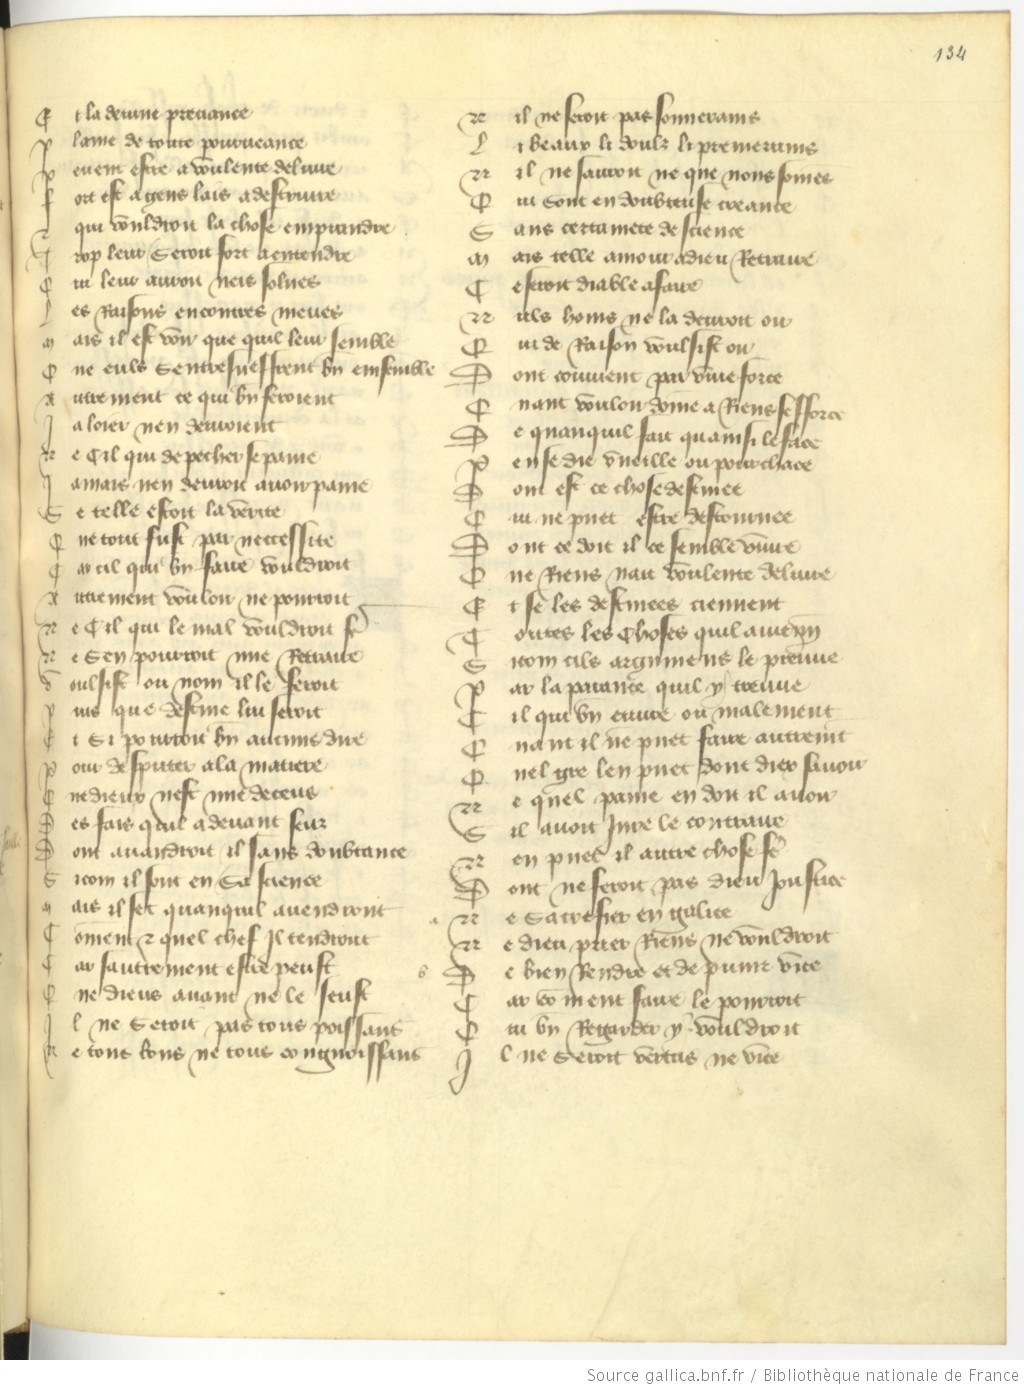 134
E t la deuine preuance
P laine de toute pourueance
P euent estre a voulente deliure
F ort est a gens lais a destruire
E qui vouldroit la chose emprandre
T rop leur Seroit fort a entendre
Q ui leur auroit neis solues
L es Raisons encontres meues
M ais il est voir que quil leur semble
Q ne euls Sentresueffrent bn emsemble
A utrement ce qui bn feroient
J a loier nen deuroient
N e Cil qui de pecher se paine
J amais nen deuroit auoir paine
S e telle estoit la verite
Q ne tout fust par neccessite
C ar cil qui bn faire vouldroit
A utrement vouloir ne pourroit
N e Cil qui le mal vouldroit fe
N e Sen pourroit mie Retraire
V oulsist ou nom il le feroit
P uis que destine lui seroit
E t Si pourroit bn aucuns dire
P our desputer a la matiere
Q ne dieux nest mie deceus
D es fais quil a deuant seuz
D ont auandront il sans doubtance
S icom il sont en Sa science
M ais il set quanquil auendront
C oment z quel chef Jl tendront
C ar sautrement estre peust
Q ne dieus auant ne le seust
J l ne Seroit pas tous poissans
N e tous bons ne tous congnoissans
N il ne seroit pas souuerains
L i beaux li doulz li premerains
N il ne sauroit ne que nous somes
Q ui Sont en doubteuse creance
S ans certainete de science
M ais telle amour a dieu Retraire
C e seroit diable a faire
N uls homs ne la deuroit oir
Q ui de Raison voulsist oir
D ont conuient par viue force
Q nant vouloir dome a Riens sefforce
D e quanquil fait quainsi le face
P ense die vueille ou pourchace
D ont est ce chose destinee
Q ui ne puet estre destournee
D ont ce doit il ce semble viure
Q ne Riens nait voulente deliure
E t se les destinees tiennent
T outes les Choses quil auienn
S icom cils argumens le preuue
P ar la parance quil y treuue
C il qui bn euure ou malement
Q nant il ne puet faire autremt
Q nel gre len puet dont diex sauoir
N e quel paine en doit il auoir
S il auoit Jure le contraire
N en puet il autre chose fe
D ont ne feroit pas dieu Joustice
N e Sacrefier en galice
N e dieu prier Riens ne vouldroit
D e bien Rendre et de punir vice
C ar coment faire le pourroit
Q ui bn Regarder y vouldroit
J l ne Seroit vertus ne vice
Source gallica.bnf.fr / Bibliothèque nationale de France